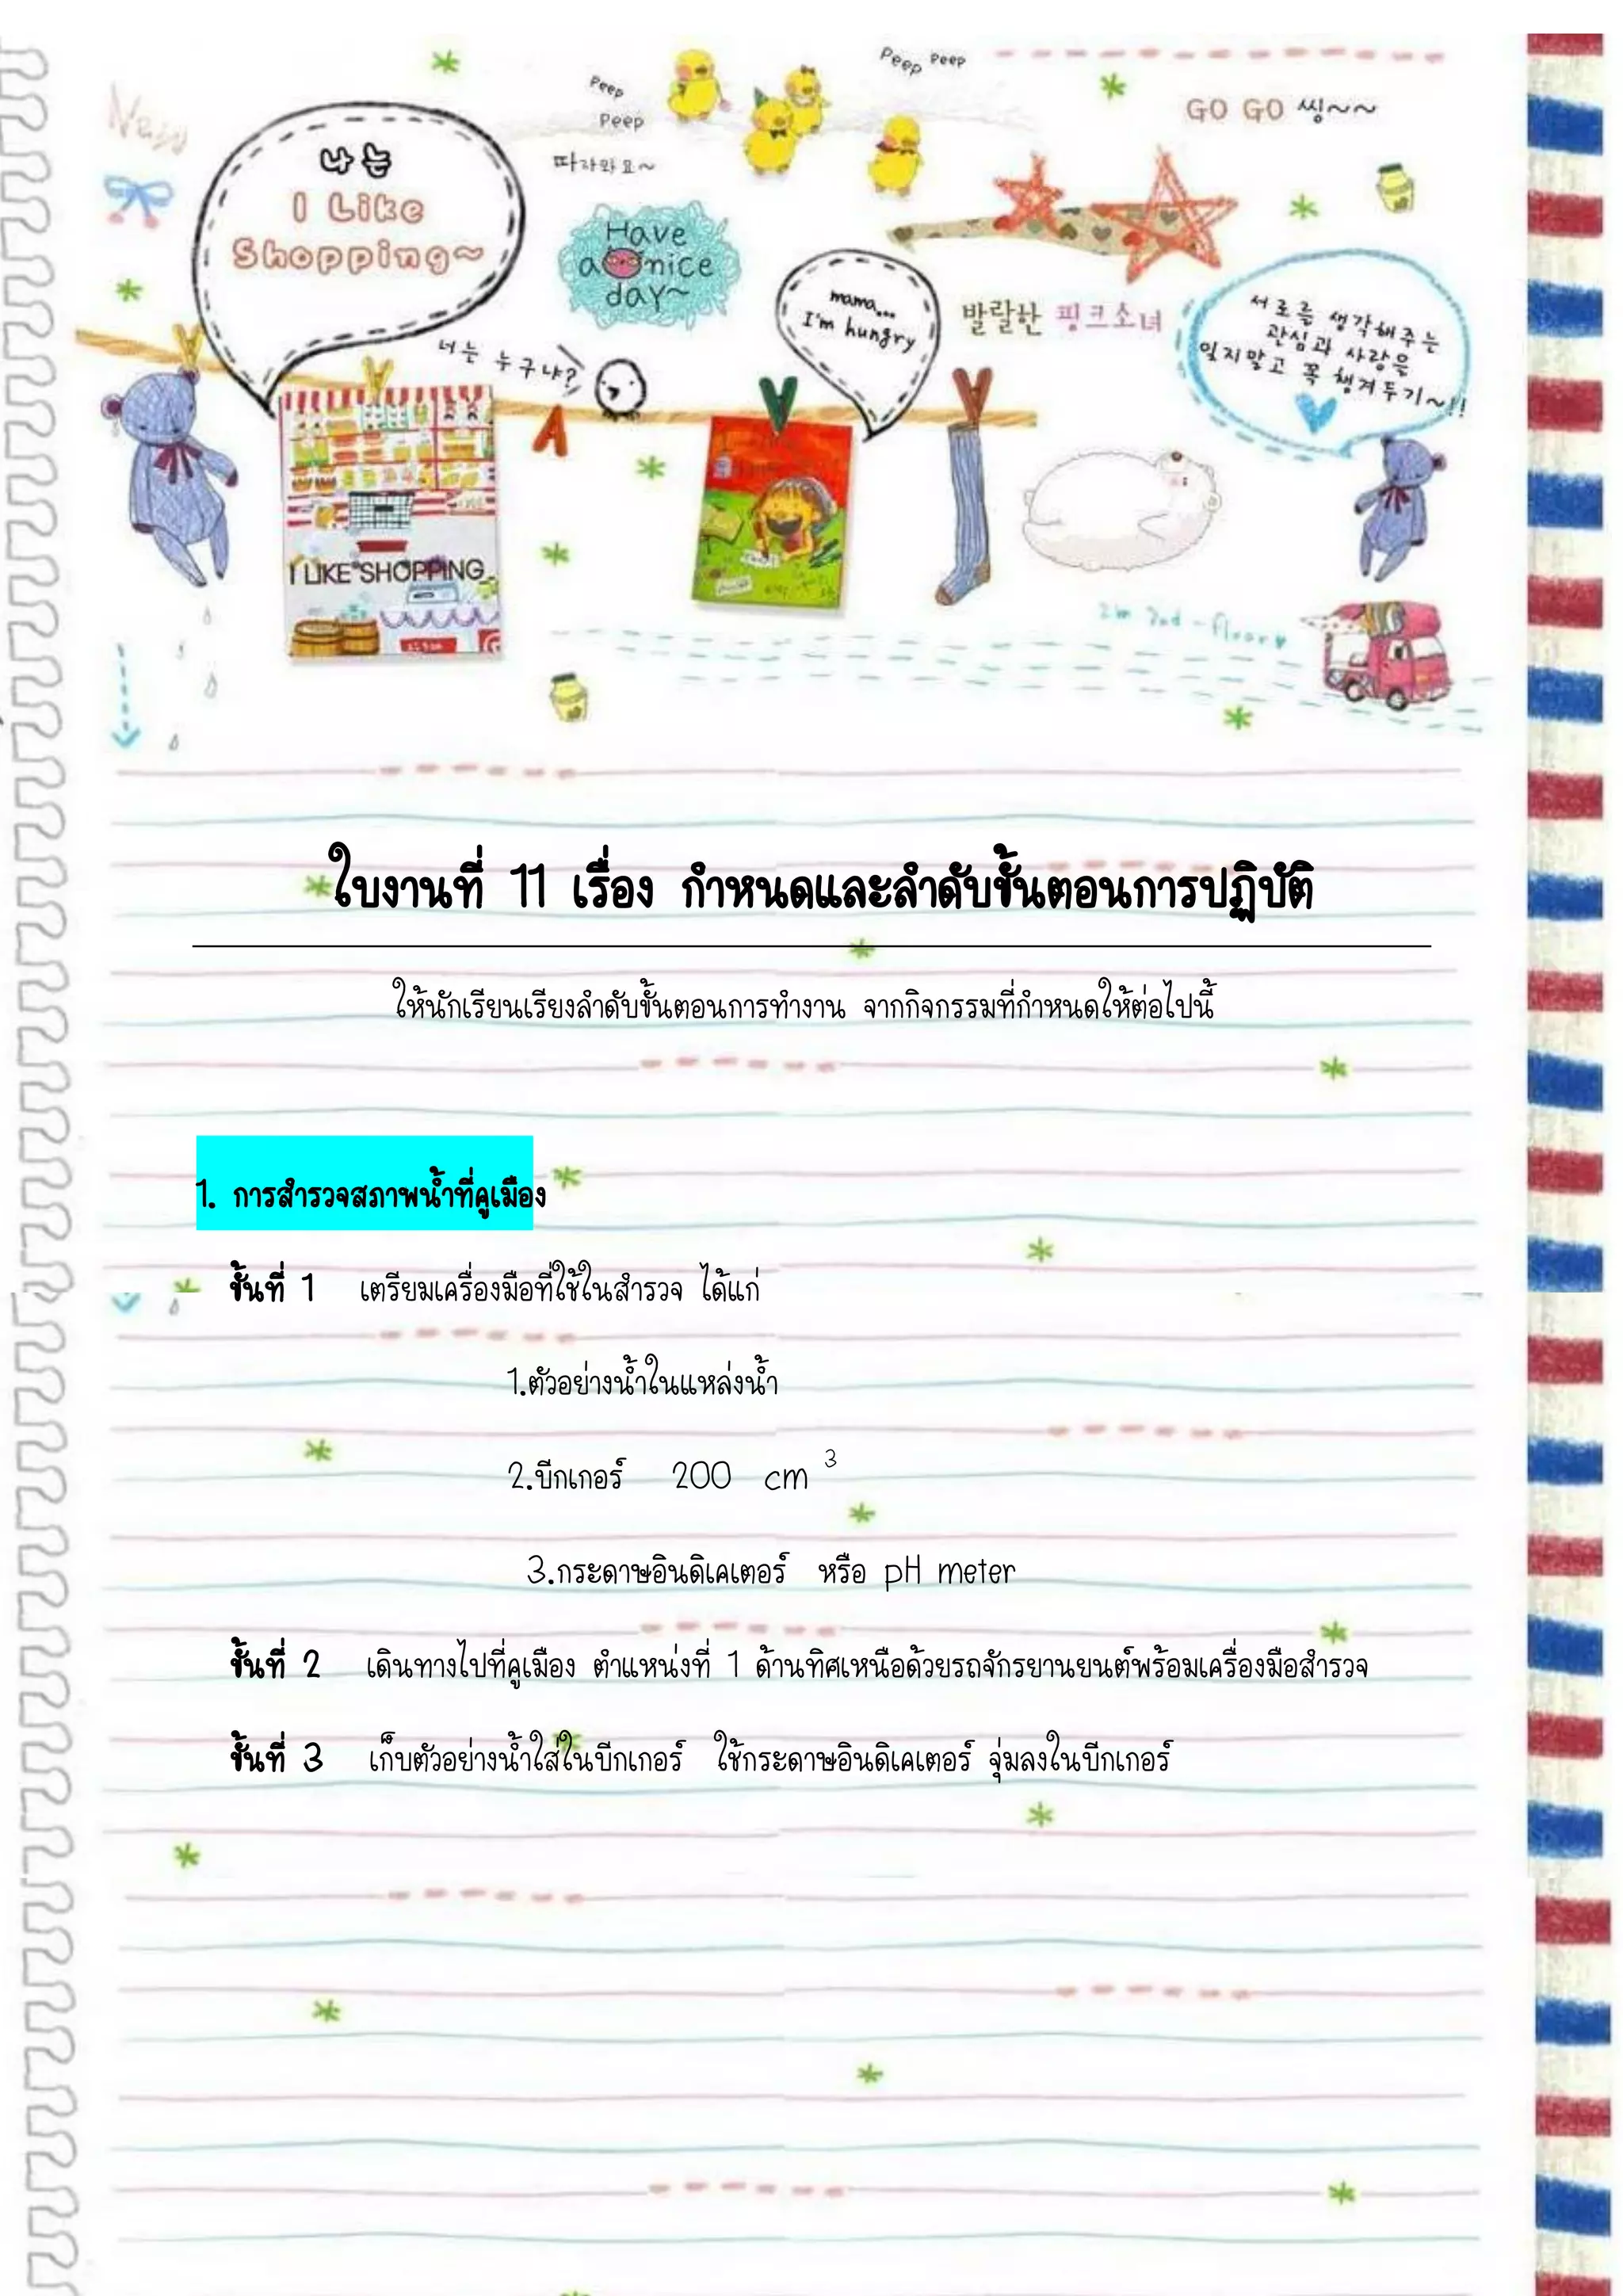 Peep Peep
Peep
Peep
GO GO 씽~~
따라와요~
나는
I Like
Shopping~
Have
a nice
day~
mama...
I'm hungry
발랄한 핑크소녀
서로를 생각해주는
관심과 사랑을
잊지말고 꼭 챙겨두기~!!
너는 누구냐?
I LIKE SHOPPING
2nd-floor
ใบงานที่ 11 เรื่อง กำหนดและลำดับขั้นตอนการปฏิบัติ
ให้นักเรียนเรียงลำดับขั้นตอนการทำงาน จากกิจกรรมที่กำหนดให้ต่อไปนี้
1. การสำรวจสภาพน้ำที่คูเมือง
ขั้นที่ 1 เตรียมเครื่องมือที่ใช้ในสำรวจ ได้แก่
1.ตัวอย่างน้ำในแหล่งน้ำ
2.บีกเกอร์ 200 cm 3
3.กระดาษอินดิเคเตอร์ หรือ pH meter
ขั้นที่ 2 เดินทางไปที่คูเมือง ตำแหน่งที่ 1 ด้านทิศเหนือด้วยรถจักรยานยนต์พร้อมเครื่องมือสำรวจ
ขั้นที่ 3 เก็บตัวอย่างน้ำใส่ในบีกเกอร์ ใช้กระดาษอินดิเคเตอร์ จุ่มลงในบีกเกอร์